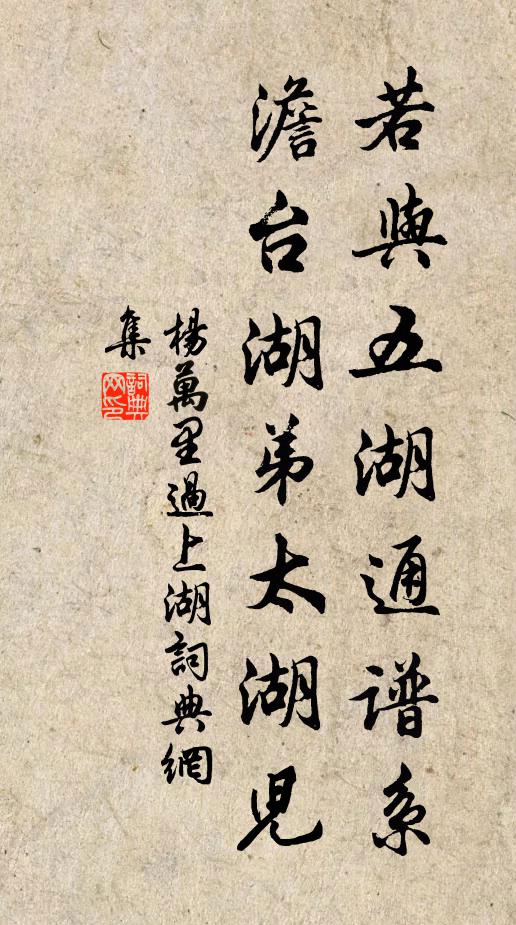 若與五湖通谱系
澹台湖弟太湖兒
楊萬里過上湖詞典網
集
詞典
网印